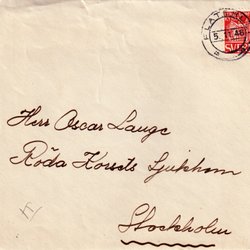 5. 46
SVE
Herr Oscar Lange
Röda Korsets Sjukhem
Stockholm